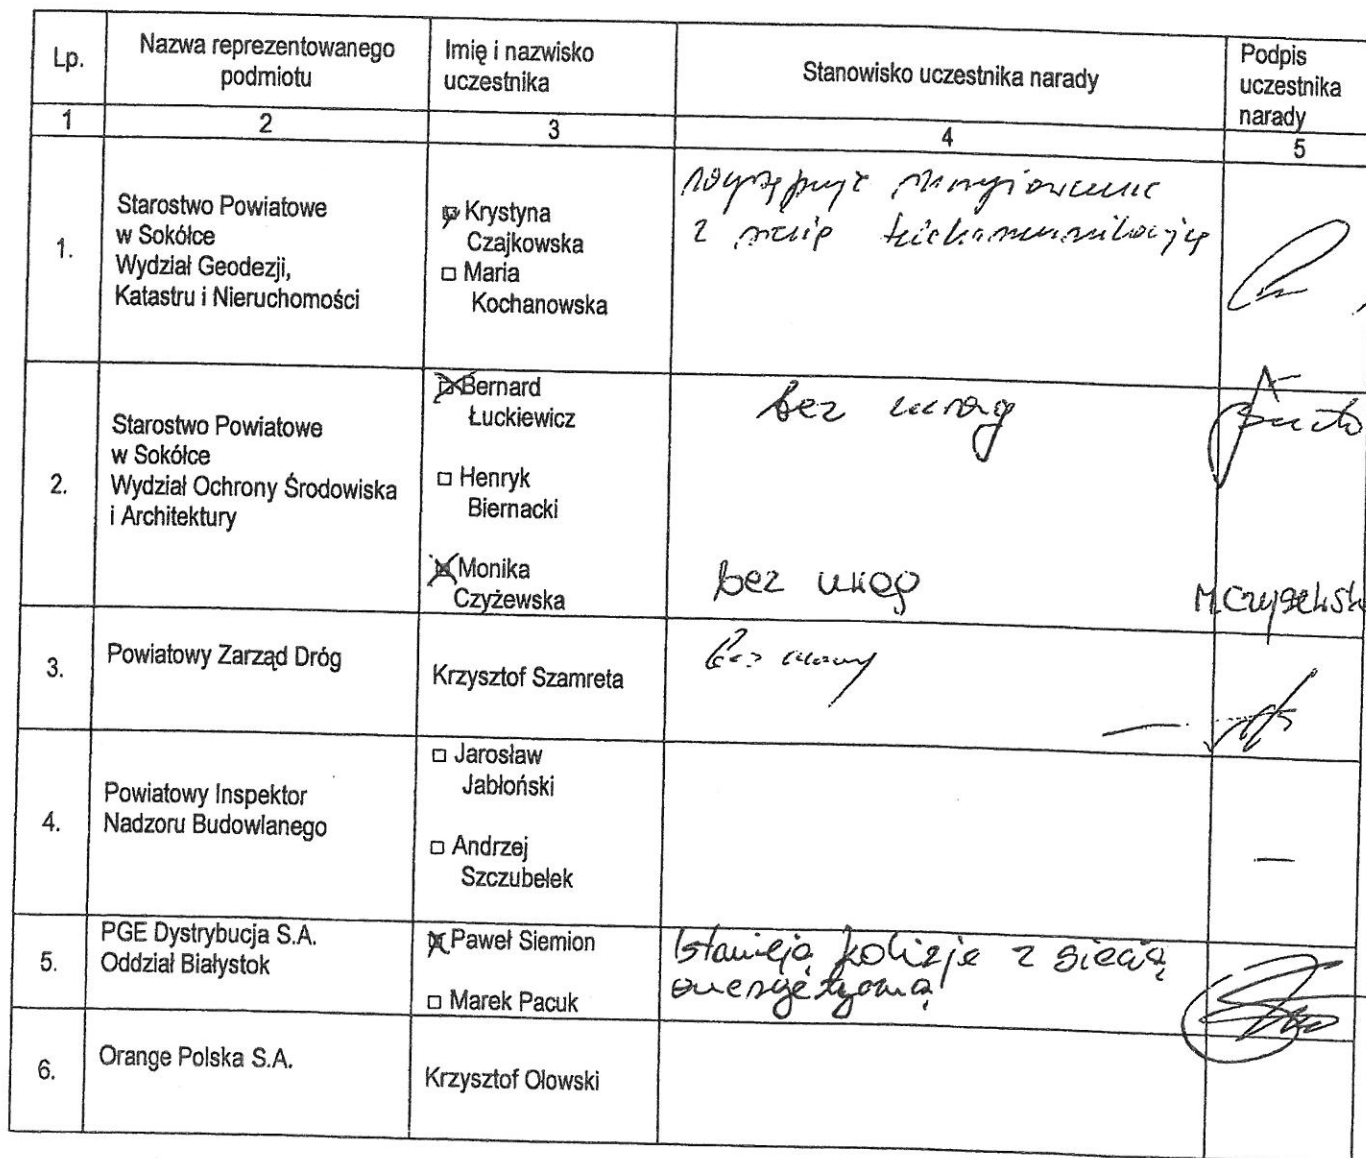 Lp.
Nazwa reprezentowanego
podmiotu
Imię i nazwisko
uczestnika
Stanowisko uczestnika narady
Podpis
uczestnika
narady
1
2
3
4
5
1.
Starostwo Powiatowe
w Sokółce
Wydział Geodezji,
Katastru i Nieruchomości
Krystyna
Czajkowska
□ Maria
Kochanowska
występuje
z siecią telekomunikacyjną
2.
Starostwo Powiatowe
w Sokółce
Wydział Ochrony Środowiska
i Architektury
Bernard
Łuckiewicz
□ Henryk
Biernacki
Monika
Czyżewska
bez uwag
bez uwag
3.
Powiatowy Zarząd Dróg
Krzysztof Szamreta
bez uwag
4.
Powiatowy Inspektor
Nadzoru Budowlanego
□ Jarosław
Jabłoński
□ Andrzej
Szczubełek
—
5.
PGE Dystrybucja S.A.
Oddział Białystok
Paweł Siemion
□ Marek Pacuk
Istnieją kolizje z siecią
energetyczną
6.
Orange Polska S.A.
Krzysztof Olowski